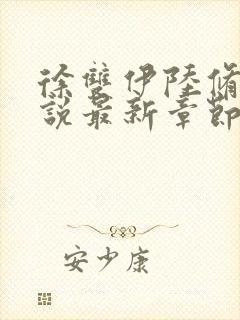 徐雙伊陸脩
說最新章節
安少康